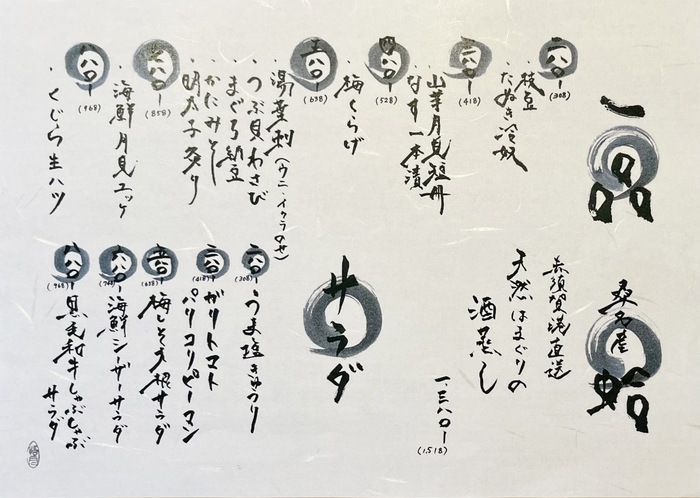 一品
二八〇ー
(308)
・枝豆
・たぬき冷奴
三八〇ー
(418)
・山芋月見短冊
・なす一本漬
四八〇ー
(528)
・梅くらげ
五八〇ー
(638)
・湯葉刺(ウニ、イクラのせ)
・つぶ貝わさび
・まぐろ納豆
・かにみそ
・明太子炙り
七八〇ー
(858)
・海鮮月見ユッケ
八八〇ー
(968)
・くじら生ハツ
桑名産
蛤
赤須賀港直送
天然はまぐりの
酒蒸し
一、三八〇ー
(1,518)
サラダ
二八〇ー
(308)
・うま塩きゅうり
三八〇ー
(418)
・ガリトマト
・パリコリピーマン
五八〇ー
(638)
・梅しそ大根サラダ
六八〇ー
(748)
・海鮮シーザーサラダ
八八〇ー
(968)
・黒毛和牛しゃぶしゃぶ
サラダ